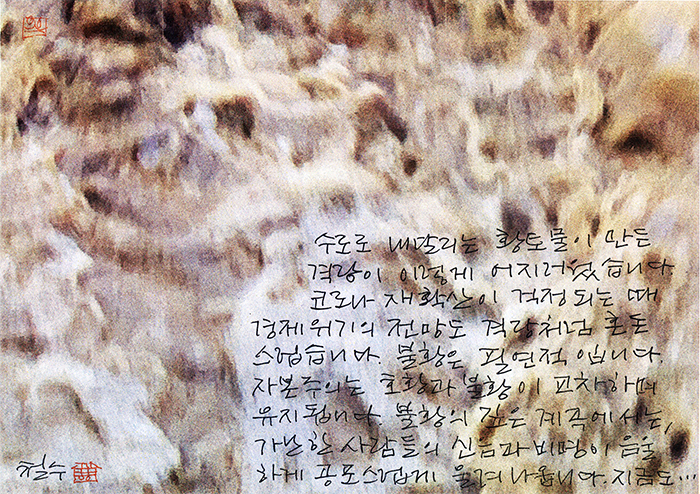 수로로 내달리는 황토물이 만든
격랑이 이렇게 어지러웠습니다
코로나 재확산이 걱정되는 때
경제위기의 전망도 격랑처럼 혼돈
스럽습니다. 불황은 필연적입니다.
자본주의는 호황과 불황이 교차하며
유지됩니다. 불황의 깊은 계곡에서는,
가난한 사람들의 신음과 비명이 음울
하게 공포스럽게 울려나옵니다. 지금도...
철수